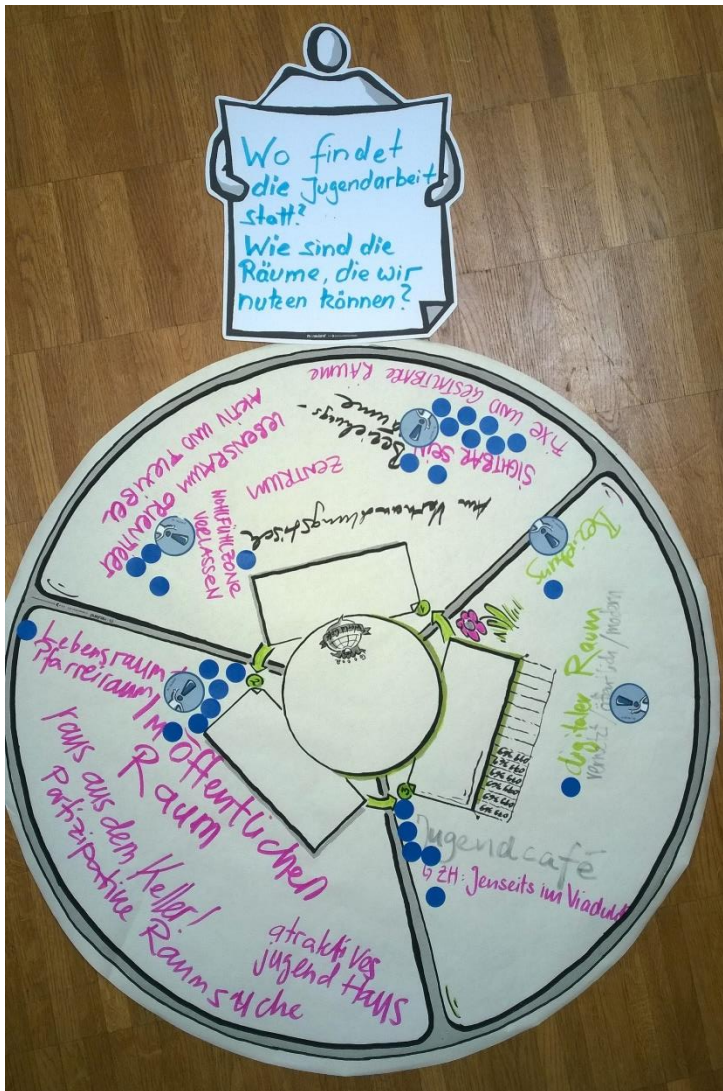 Wo findet
die Jugendarbeit
statt?
Wie sind die
Räume, die wir
nutzen können?
FIXE UND GESTALTBARE RÄUME
SICHTBAR SEIN
Beziehungs-
räume
ZENTRUM
am Verhandlungstisch
AKTIV UND FLEXIBEL
LEBENSRAUM ORIENTIERT
WOHLFÜHLZONE
VERLASSEN
Beziehung
digitaler Raum
vernetzt
/ modern
Jugendcafé
↳ ZH: Jenseits im Viadukt
Lebensraum,
Pfarreiraum
Im öffentlichen
Raum
raus aus dem Keller!
Partizipative Raumsuche
atraktives
jugend Haus